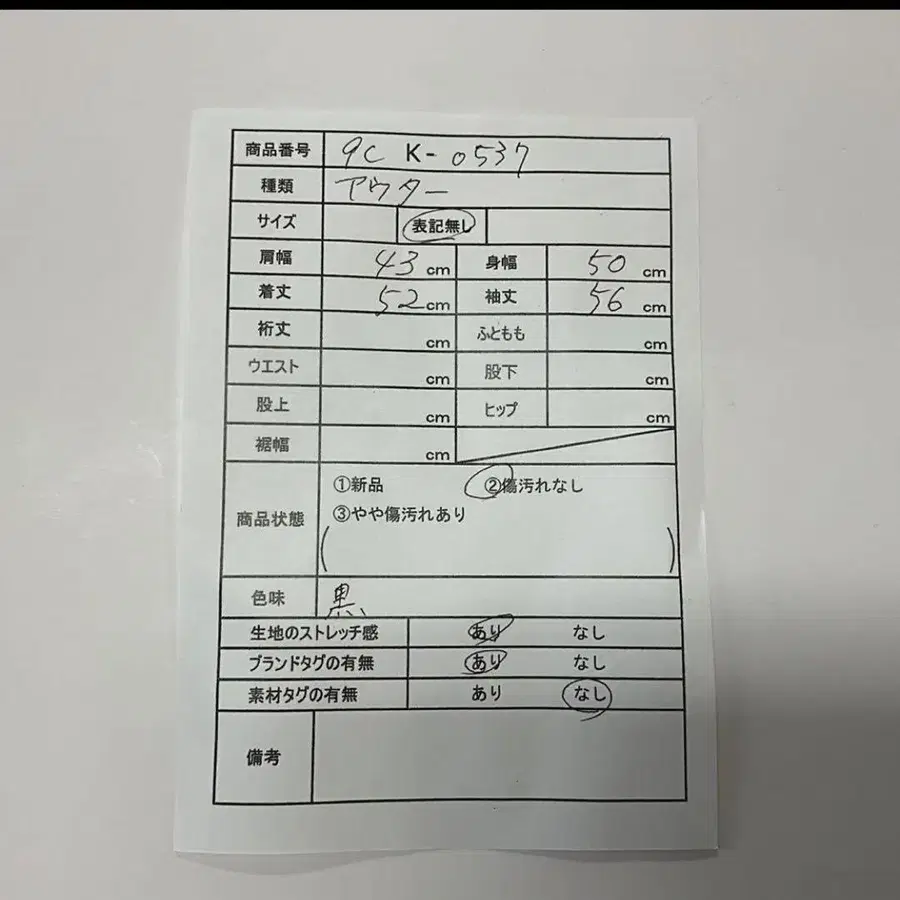 商品番号 9C K-0537
種類 アウター
サイズ 表記無し
肩幅 43 cm 身幅 50 cm
着丈 52 cm 袖丈 56 cm
裄丈 cm ふともも cm
ウエスト cm 股下 cm
股上 cm ヒップ cm
裾幅 cm
①新品 ②傷汚れなし
商品状態 ③やや傷汚れあり
( )
色味 黒
生地のストレッチ感 あり なし
ブランドタグの有無 あり なし
素材タグの有無 あり なし
備考